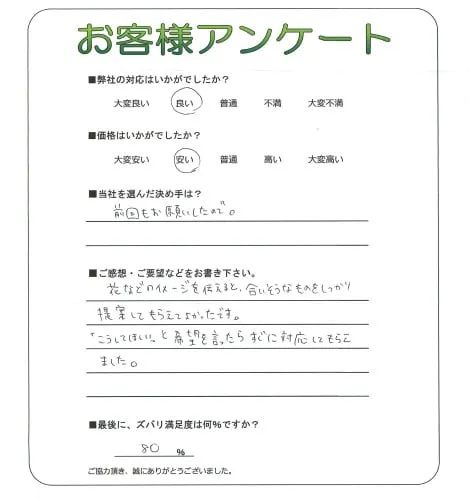 お客様アンケート
■弊社の対応はいかがでしたか？
大変良い 良い 普通 不満 大変不満
■価格はいかがでしたか？
大変安い 安い 普通 高い 大変高い
■当社を選んだ決め手は？
前回もお願いしたので。
■ご感想・ご要望などをお書き下さい。
花などのイメージを伝えると、合いそうなものをしっかり
提案してもらえてよかったです。
"こうしてほしい"と希望を言ったらすぐに対応してもらえ
ました。
■最後に、ズバリ満足度は何%ですか？
80 %
ご協力頂き、誠にありがとうございました。